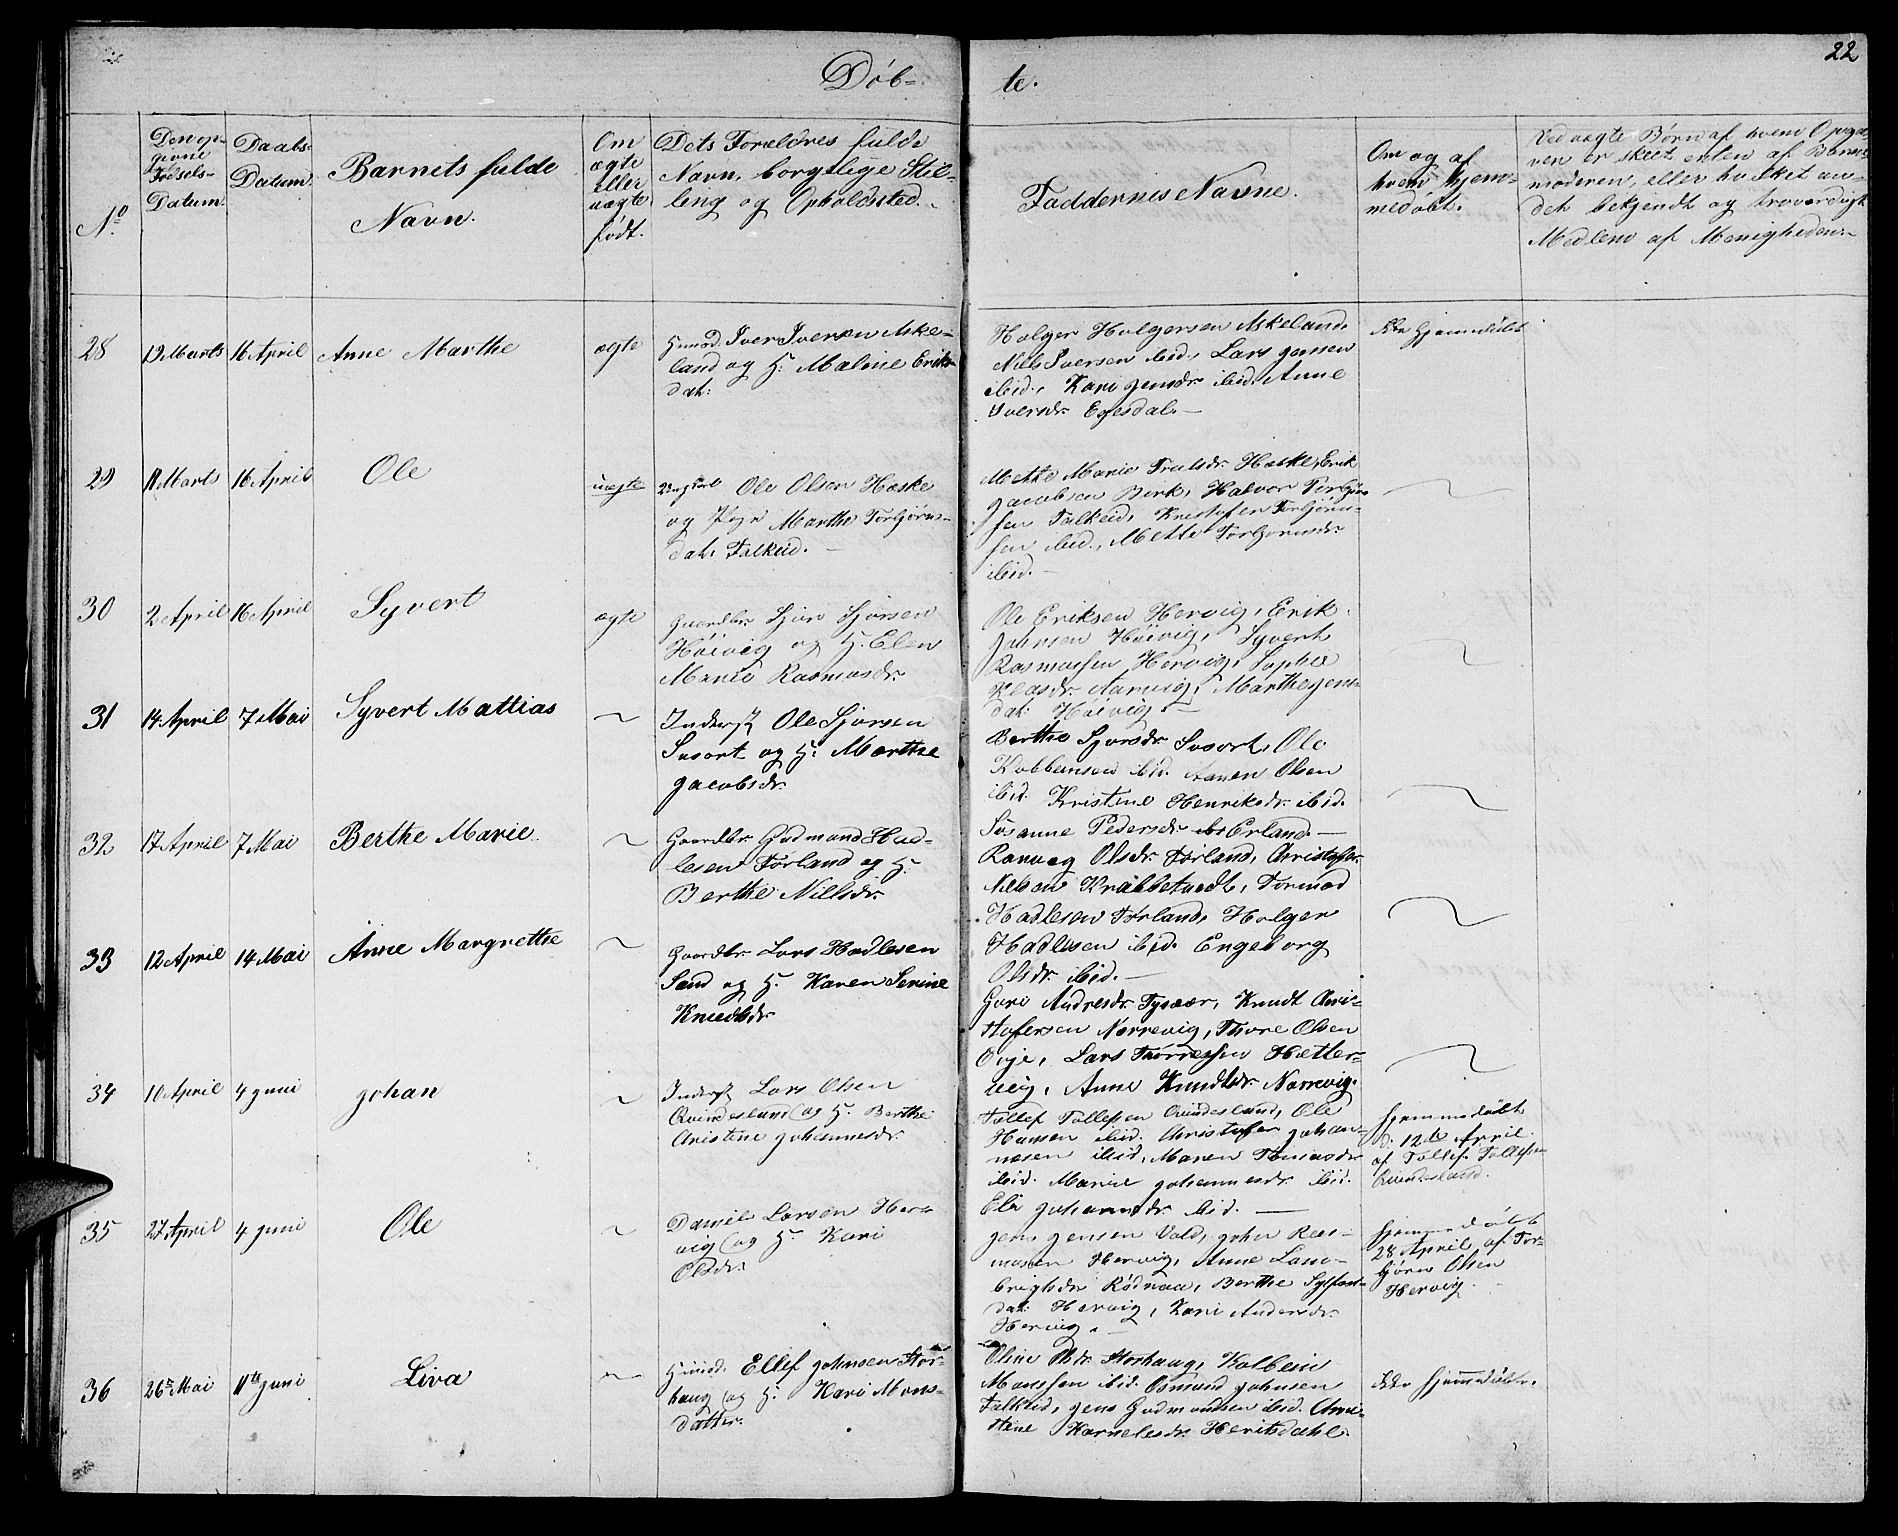 22
Døb- te.
No
Den op-
givne
Fødsels-
Datum.
Daabs-
Datum.
Barnets fulde
Navn.
Om
ægte
eller
uægte
født.
Dets Forældres fulde
Navn, borgelige Stil-
ling og Opholdsted.
Faddernes Navne.
Om og af
hvem hjem-
medøbt.
Ved uægte Børn af hvem Opga-
ven er skeet enten af Barne-
moderen, eller hvilket an-
det bekjendt og troværdigt
Medlem af Menigheden.
28 19 Marts 16 April Anne Marthe ægte
Huusmd Iver Iversen Aske-
land og H. Maline Eriks-
dat:
Holger Holgersen Askeland,
Niels Iversen ibid, Lars Jensen
ibid, Kari Jensdr. ibid, Anne
Iversdr. Egesdal.
Ikke hjemmedøbt
29 11 Marts 16 April Ole uægte
Ungkarl Ole Olsen Haske
og Pige Marthe Torbjørns-
dat. Falkeid.
Mette Marie Trulsdr. Haske, Erik
Jacobsen Birk, Halvor Torbjørn-
sen Falkeid, Kristofer Torbjørn-
sen ibid, Mette Torbjørnsdr.
ibid.
30 2 April 16 April Syvert ægte
Gaardbr. Sjur Sjursen
Høivig og H. Elen
Marie Rasmusdr.
Ole Eriksen Hervig, Erik
Johnsen Høivig, Syvert
Rasmussen Hervig, Sophie
Klasdr. Aarvig, Marthe Jens-
dat. Høivig.
31 14 April 7 Mai Syvert Mattias
Inderst Ole Sjursen
Susort og H. Marthe
Jacobsdr.
Berthe Sjursdr. Susort, Ole
Kolbensen ibid. Aanen Olsen
ibid. Kristine Henriksdr. ibid.
Susanne Pedersdr. Erland.
32 17 April 7 Mai Berthe Marie
Gaardbr. Gudmund Had-
lesen Førland og H.
Berthe Nilsdr.
Ranveg Olsdr. Førland, Christofer
Nilsen Krabbetvedt, Tormod
Hadlesen Førland, Holger
Hadlesen ibid. Engeborg
Olsdr. ibid.
33 12 April 14 Mai Anne Margrethe
Gaardbr. Lars Hadlesen
Sand og H. Karen Serine
Knudsdr.
Guri Andresdr. Tysvær, Knudt Chri-
stofersen Nørrevig, Thore Olsen
Lars Tørressen Hætter-
vig, Anne Knudtsdr. Nørrevig.
34 10 April 4 Juni Johan
Inderst Lars Olsen
Qvindesland og H. Berthe
Christine Johannesdr.
Tollef Tollefsen Qvindesland, Ole
Hansen ibid. Christofer Johan-
nesen ibid, Maren Tomasdr.
ibid. Marie Johannesdr. ibid.
Eli Johannesdr. ibid.
Hjemmedøbt
d. 12te April
af Tollef Tollefsen
Qvindesland.
35 27 April 4 Juni Ole
Daniel Larsen Her-
vig og H. Kari
Olsdr.
Jens Jensen Vold, John Ras-
musen Hervig, Anne Lam-
brigtsdr. Rødnaa, Berthe
dat: Hervig, Kari Andersdr.
Hervig.
Hjemmedøbt
28 April af Tor-
bjørn Olsen
Hervig
36 26de Mai 11te Juni Liva
Huusmd. Ellef Johnsen Stor-
haug og H. Kari Mons-
datter.
Oline Storhaug, Kolbein
Monssen ibid. Osmund Johnsen
Falkeid, Jens Gudmundsen ibid. Chri-
stine Karnelesdr. Heritsdahl.
Ikke hjemmedøbt.